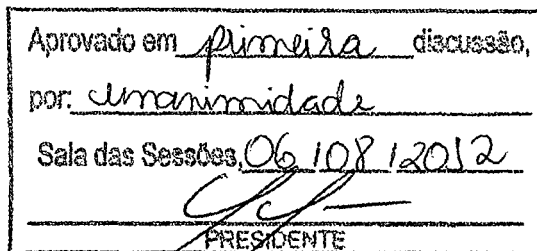 Aprovado em primeira discussão,
por: unanimidade
Sala das Sessões, 06/08/2012
PRESIDENTE